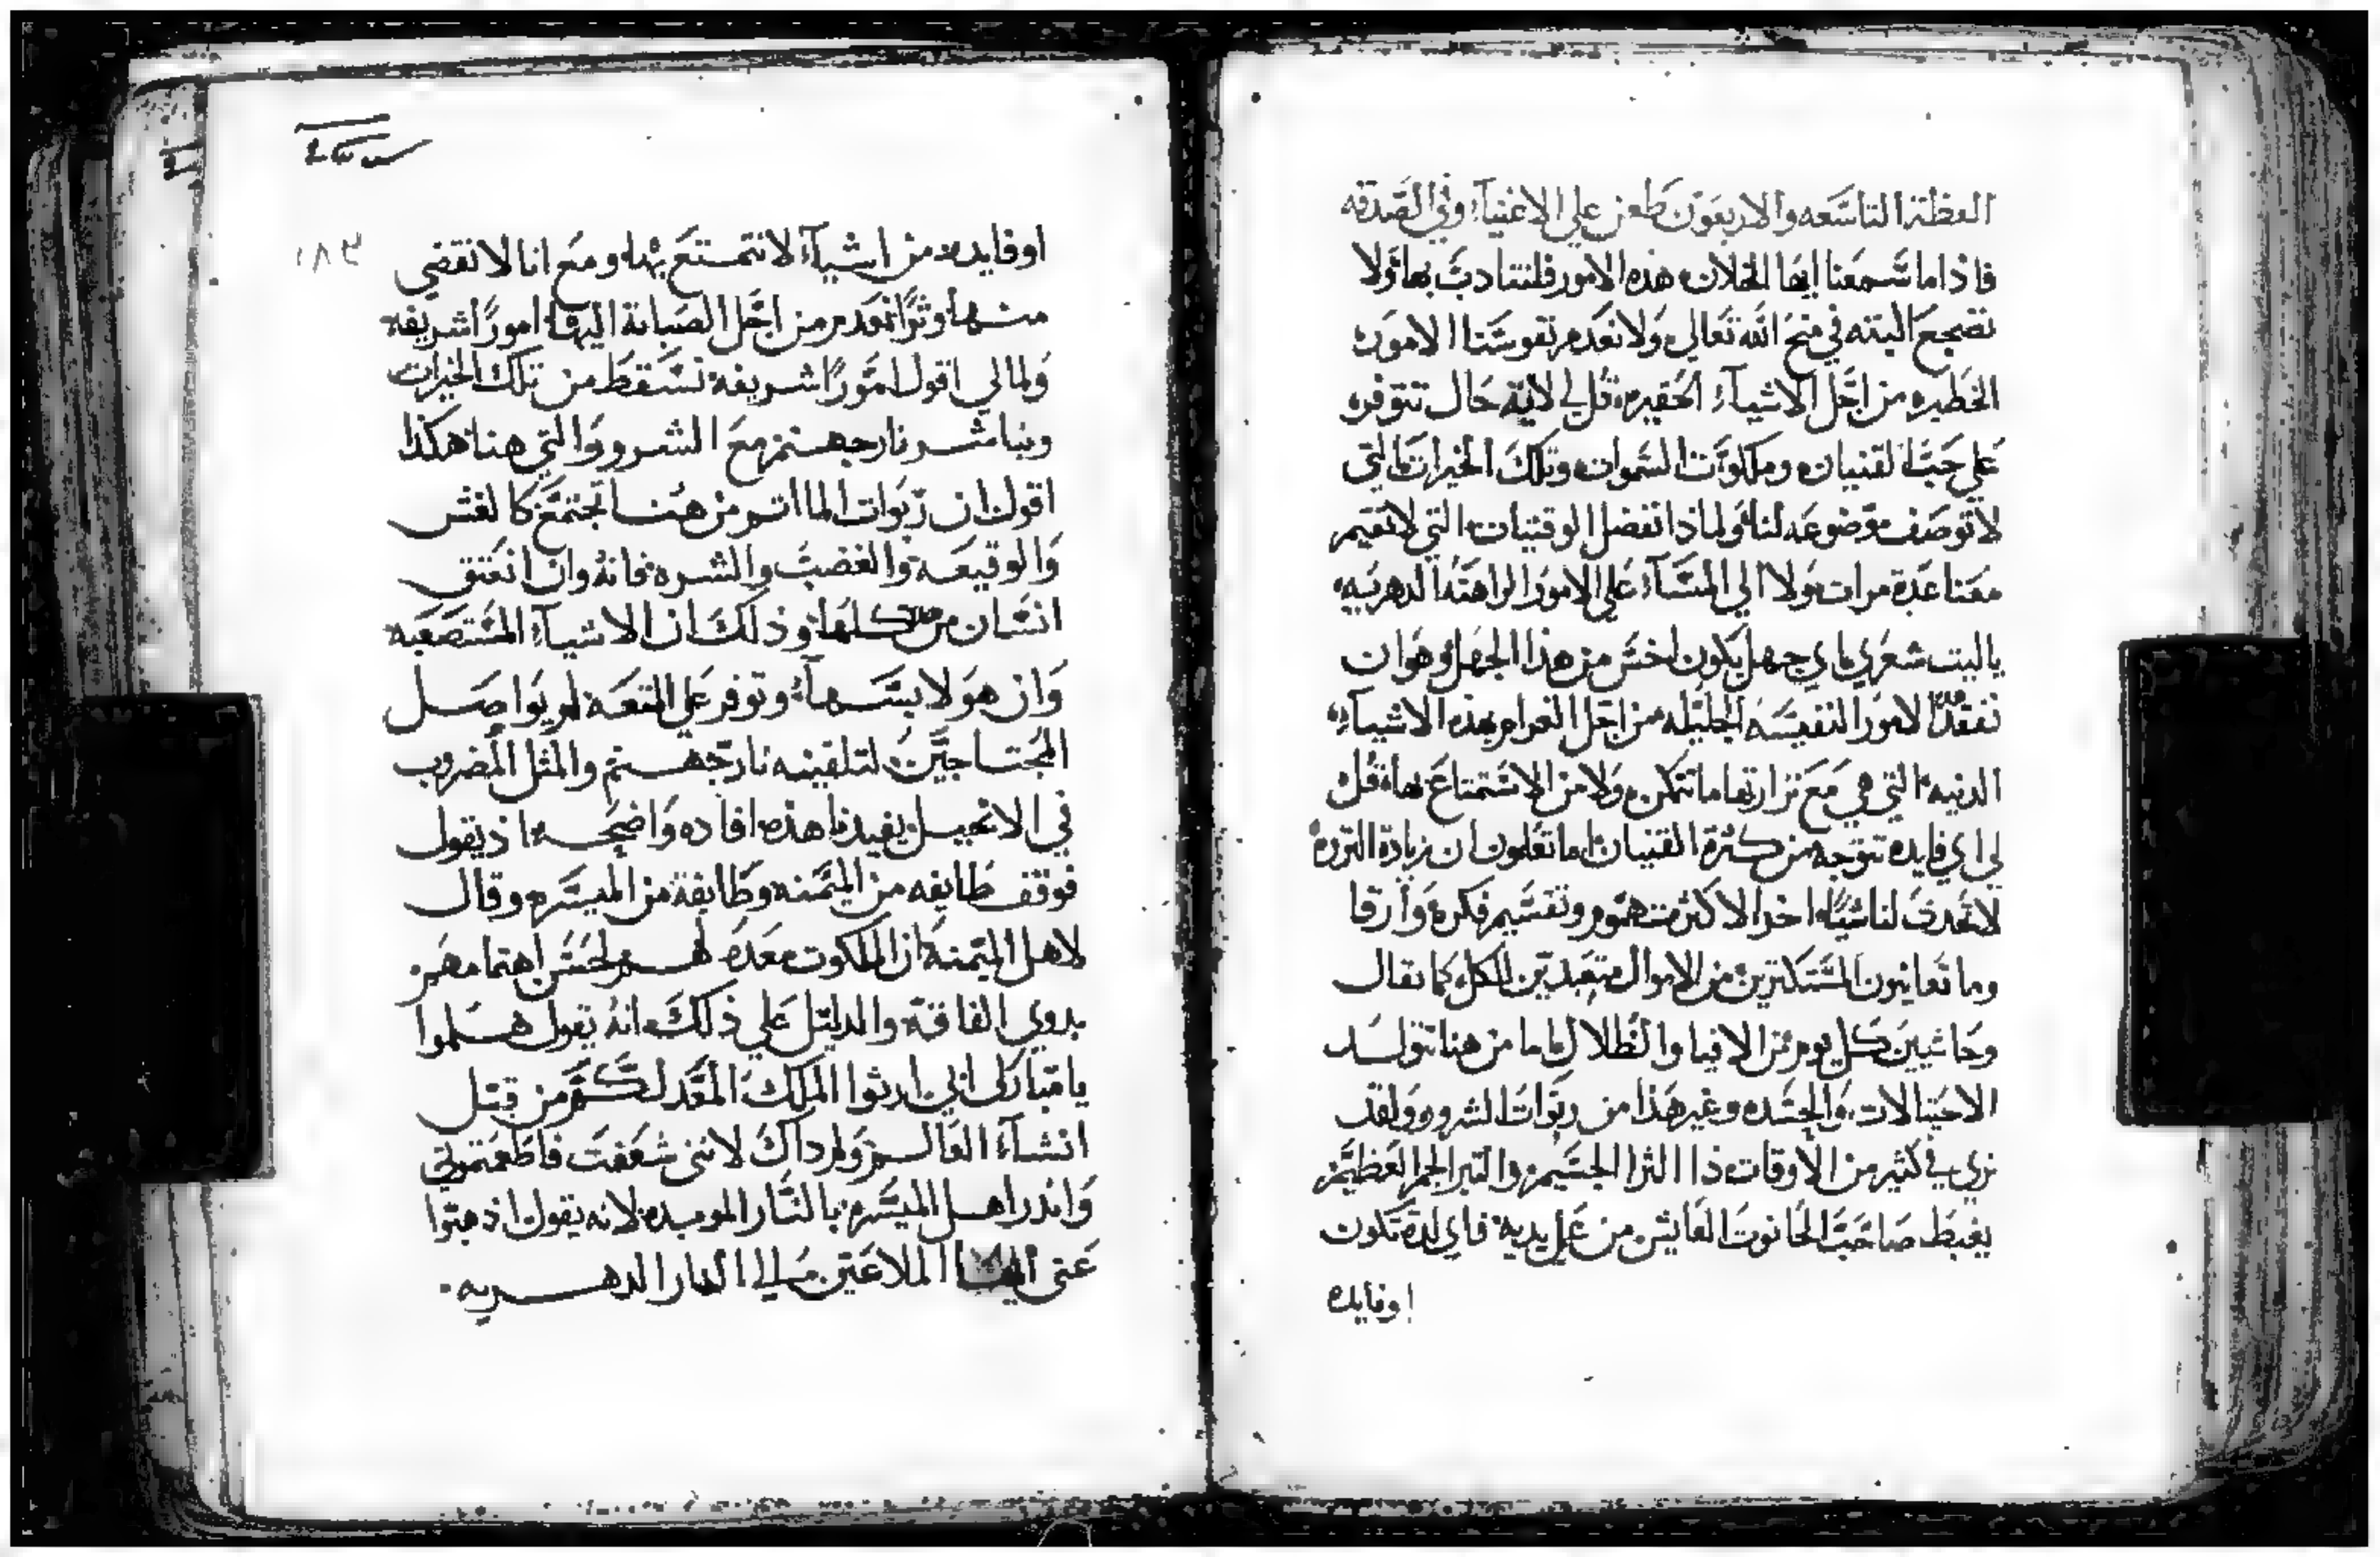 العظة التاسعه والاربعون طعن علي الاغنيآء وفي الصدقه
فاذا ما سمعنا ايها الخلان هذه الامور فلنتادب بها ولا
نضجع البته في منح الله تعالي ولا نعدم نفوسنا الامور
الخطيره من اجل الاشيآء الحقيره قل لي لاية حال تتوفر
علي حب القنيان وملكوت السموات وتلك الخيرات التي
لا توصف موضوعه لنا ولماذا نفضل الوقتيات التي لا تقيم
معنا عدة مرات ولا الي المسآء علي الامور الراهنه الدهريه
ياليت شعري اي جهل يكون اخس من هذا الجهل وهو ان
نفقد الامور النفيسه الجليله من اجل الغرام بهذه الاشيآء
الدنيه التي هي مع نزارتها ما تمكن ولا من الاستمتاع بها قل
لي اي فايده تتوجه من كثرة القنيان اما تعلمون ان زيادة الثروه
لا تحدث لنا شيًا اخر الا كثرت هموم وتقسيم فكره وارقا
وما تعاينون المستكثرين من الاموال متعبدين للكل كما يقال
وخاشيين كل يوم من الافيا والظلال اما من هنا تتولد
الاحتيالات والحسد وغير هذا من ربوات الشرور ولقد
نري في كثير من الاوقات ذا الثرا الجسيم والتبر الجم العظيم
يغبط صاحب الحانوت العايش من عمل يديه فاي لذة تكون
اوفايده
١٨٣
اوفايده من اشيآء لا نتمتع بها ومع انا لا نقضي
منها وترًا نعدم من اجل الصبابة اليها امورًا شريفه
ولمالي اقول امورًا شريفه نسقط من تلك الخيرات
ونباشر نار جهنم مع الشرور التي هنا هكذا
اقول ان ربوات الماأتم من هنا تجتمع كالغش
والوقيعه والغضب والشره فانه وان انعتق
انسان من كلها وذلك ان الاشيآء المستصعبه
وان هو لابسها وتوفر علي المتعه لم يواصل
المحتاجين لتلقينه نار جهنم والمثل المضروب
في الانجيل يفيدنا هذه افاده واضحه اذ يقول
فوقف طايفه من الميمنه وطايفة من الميسره وقال
لاهل الميمنه ان الملكوت معده لهم لحسن اهتمامهم
بدوي الفاقه والدليل علي ذلك انه يقول هلموا
يا مباركي ابي ارثوا الملك المعد لكم من قبل
انشآء العالم ولم داك لانني شعفت فاطعمتموني
وانذر اهل الميسره بالنار الموبده لانه يقول اذهبوا
عني ايها الملاعين الي النار الدهريه